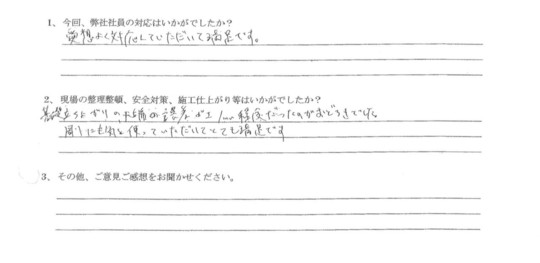 1、今回、弊社社員の対応はいかがでしたか？
愛想よく対応していただいて満足です。
2、現場の整理整頓、安全対策、施工仕上がり等はいかがでしたか？
基礎立ち上がりの水槽の誤差が±1㎜程度だったのがおどろきでした。
周りにも気を使っていただいてとても満足です
3、その他、ご意見ご感想をお聞かせください。